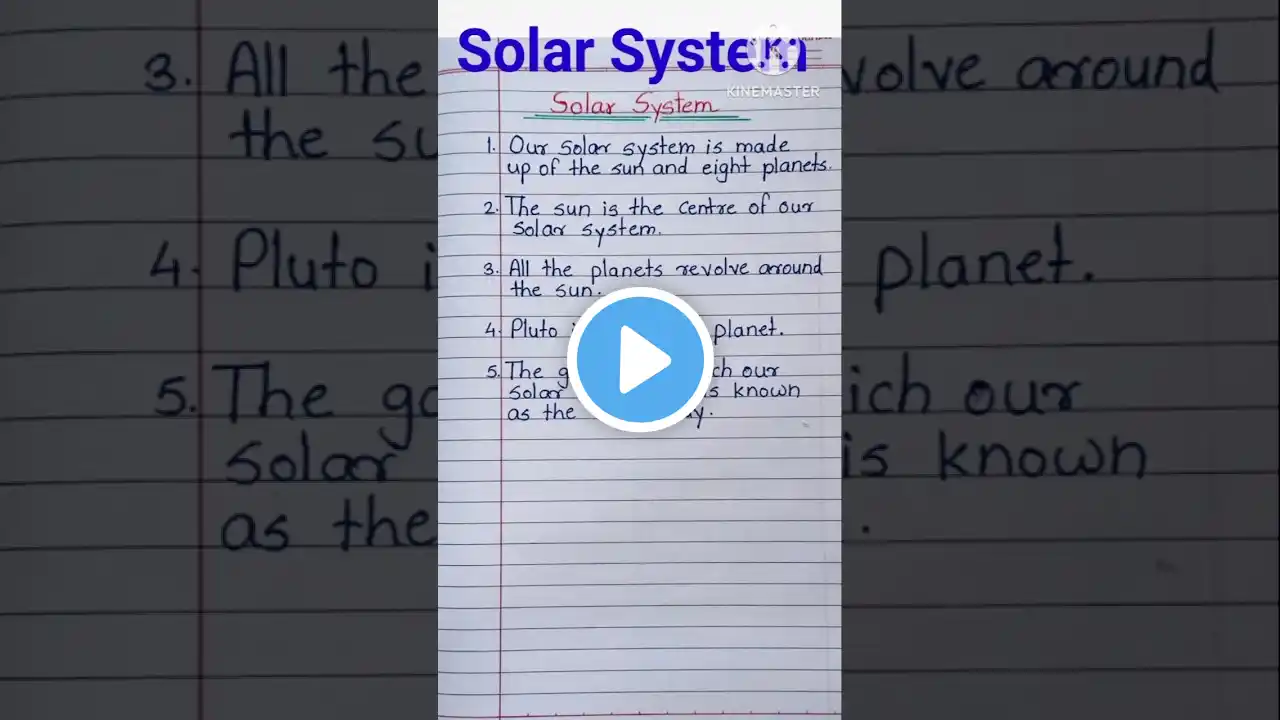 Solar System
KINEMASTER
Solar System
1. Our solar system is made
up of the sun and eight planets.
2. The sun is the centre of our
solar system.
3. All the planets revolve around
the sun.
4. Pluto planet.
5. The our
solar known
as the
3. All the around
the
4. Pluto planet.
5. The our
solar is known
as the